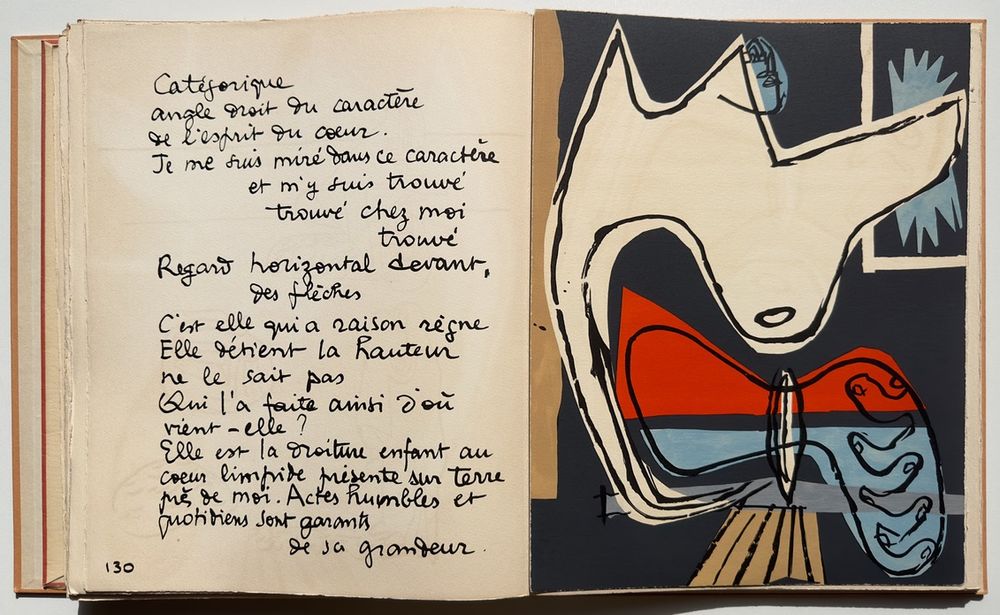 Catégorique
angle droit du caractère
de l'esprit du cœur.
Je me suis miré dans ce caractère
et m'y suis trouvé
trouvé chez moi
trouvé
Regard horizontal devant,
des flèches
C'est elle qui a raison règne
Elle détient la hauteur
ne le sait pas
Qui l'a faite ainsi d'où
vient-elle ?
Elle est la droiture enfant au
cœur limpide présente sur terre
près de moi. Actes humbles et
quotidiens sont garants
de sa grandeur.
130